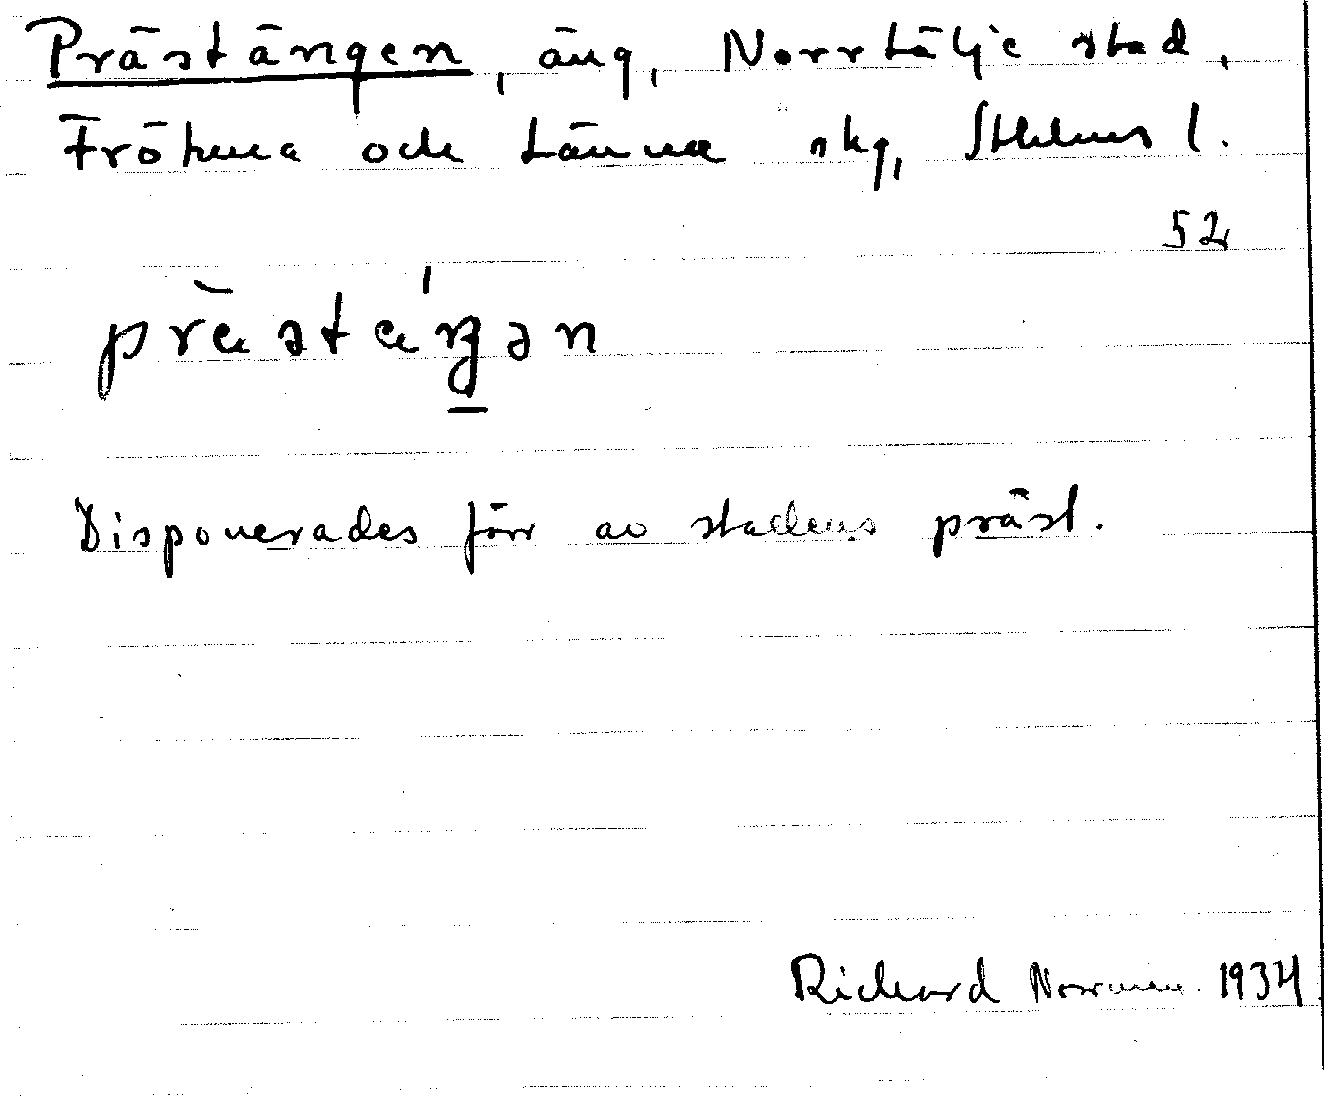 Prästängen, äng, Norrtälje stad,
Frötuna och Länna skg, Sthlms l.
52
prästäŋən
Disponerades förr av stadens präst.
Richard Norman 1934